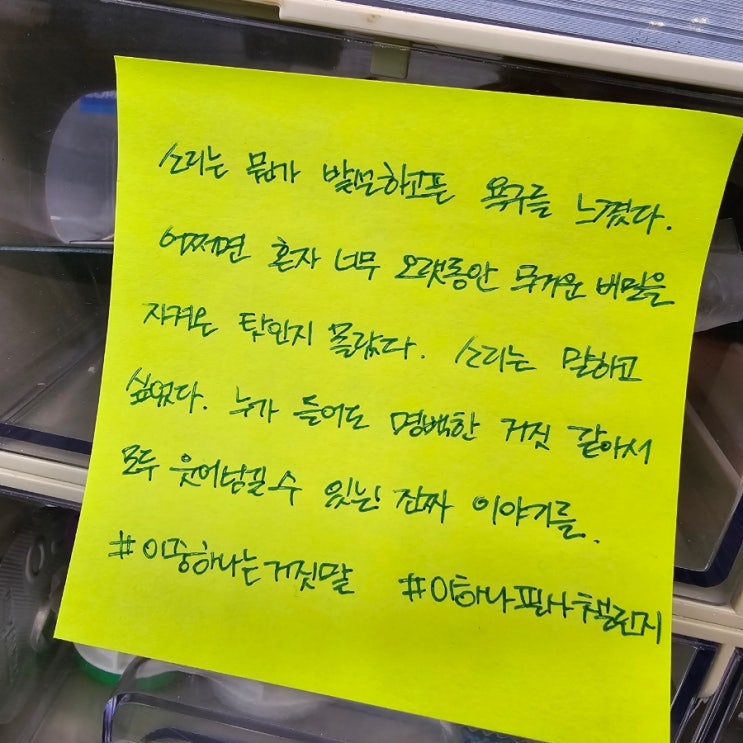 소리는 뭔가 발설하고픈 욕구를 느꼈다.
어쩌면 혼자 너무 오랫동안 무거운 비밀을
지켜온 탓인지 몰랐다. 소리는 말하고
싶었다. 누가 들어도 명백한 거짓 같아서
모두 웃어넘길 수 있는 진짜 이야기를.
#이중하나는거짓말 #이하나필사챌린지